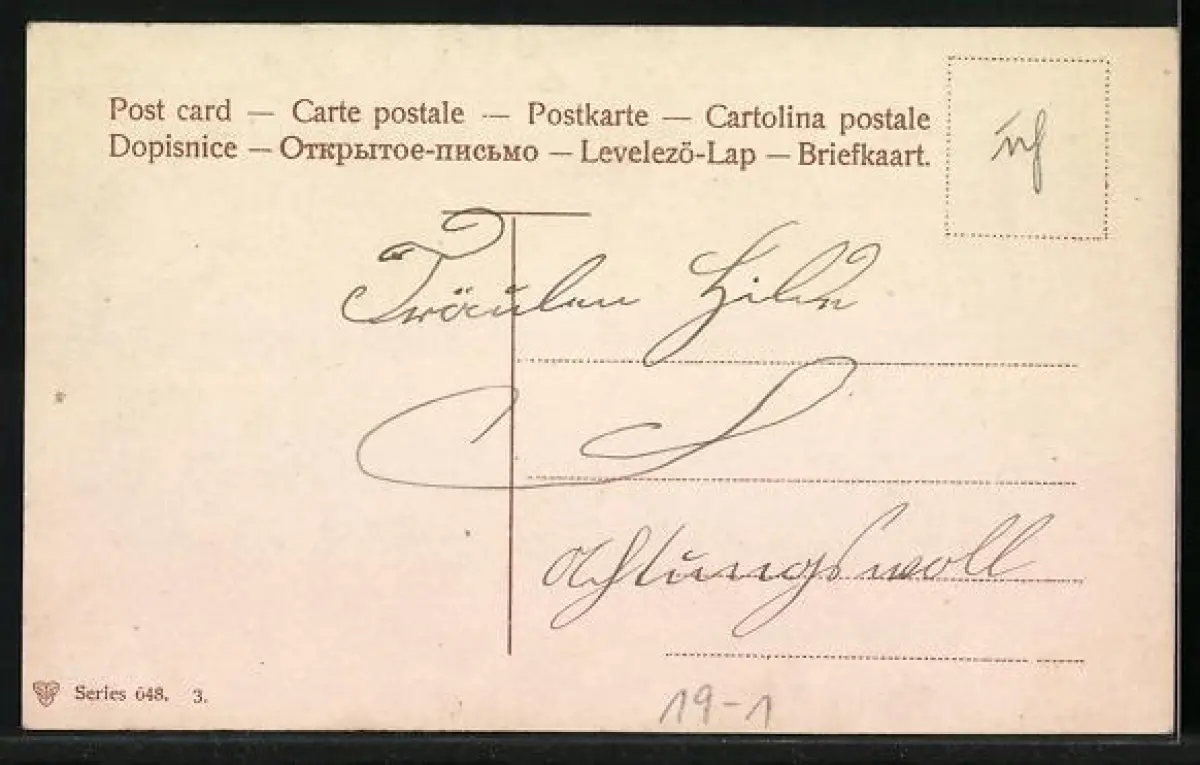 Post card — Carte postale — Postkarte — Cartolina postale
Dopisnice — Открытое-письмо — Levelezö-Lap — Briefkaart.
Fräulein
achtungsvoll
Series 648. 3.
19-1